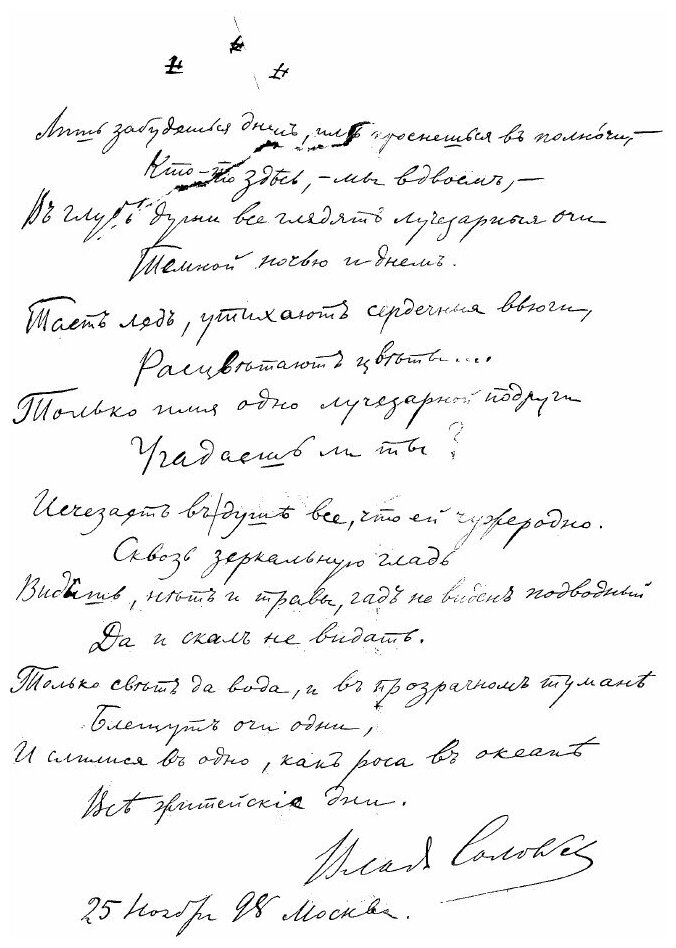 Лишь забудешься днемъ, иль проснешься въ полночи,—
Кто-то здѣсь, — мы вдвоемъ, —
Въ глубь души все глядятъ лучезарныя очи
Темной ночью и днемъ.
Таетъ ледъ, утихаютъ сердечныя вьюги,
Расцвѣтаютъ цвѣты...
Только имя одно лучезарной подруги
Угадаешь ли ты?
Исчезаетъ въ душѣ все, что ей чужеродно.
Сквозь зеркальную гладь
Видишь, нѣтъ и травы, гадъ не виденъ подводный
Да и скалъ не видать.
Только свѣтъ да вода, и въ прозрачномъ туманѣ
Блещутъ очи одни,
И слилися въ одно, какъ роса въ океанѣ
Всѣ житейскіе дни.
Влад Соловьев
25 Ноября 98 Москва.